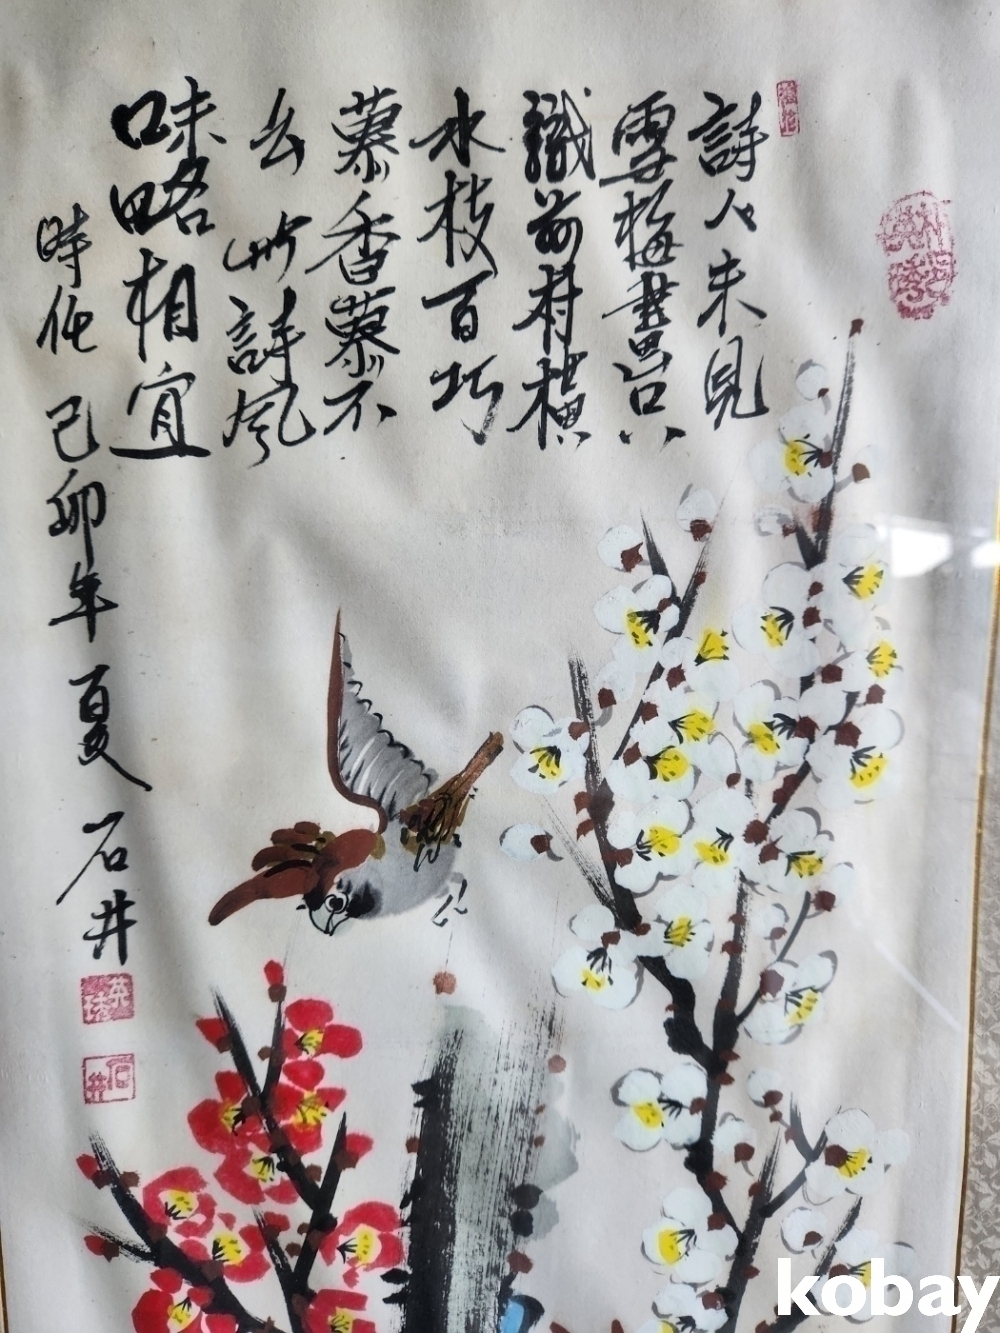 詩人未見
雪梅畫只
識前村橫
水枝百巧
慕香慕不
出竹詩風
味略相宜
時在 己卯年夏 石井
石井
kobay